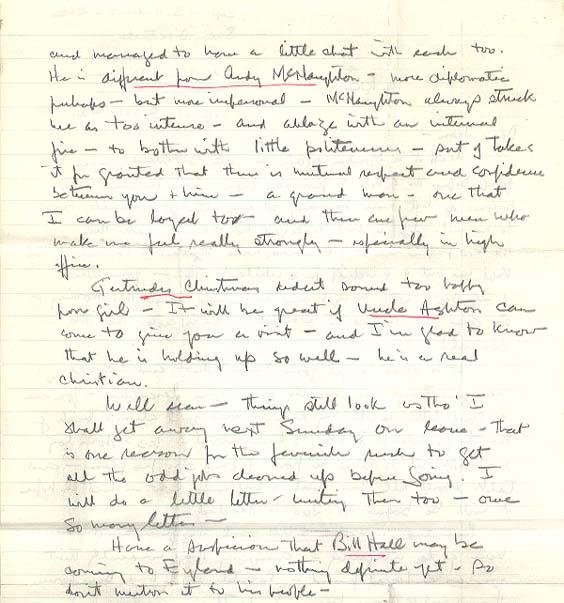 and managed to have a little chat with each too.
He is different from Andy McNaughton - more diplomatic
perhaps - but more impersonal - McNaughton always struck
me as too intense - and ablaze with an internal
fire - to bother with little politenesses - sort of takes
it for granted that there is mutual respect and confidence
between you & him - a grand man - one that
I can be loyal too - and there are few men who
make me feel really strongly - especially in high
office.
Gertrudes Christmas didn't sound too happy
poor girl - It will be great if Uncle Ashton can
come to give you a visit - and I'm glad to know
that he is holding up so well - he's a real
christian.
Well dear - things still look as tho' I
shall get away next Sunday on leave - that
is one reason for the feverish rush to get
all the odd jobs cleaned up before going. I
will do a little letter-writing then too - owe
so many letters -
Have a suspicion that Bill Hall may be
coming to England - nothing definite yet - so
don't mention it to his people -